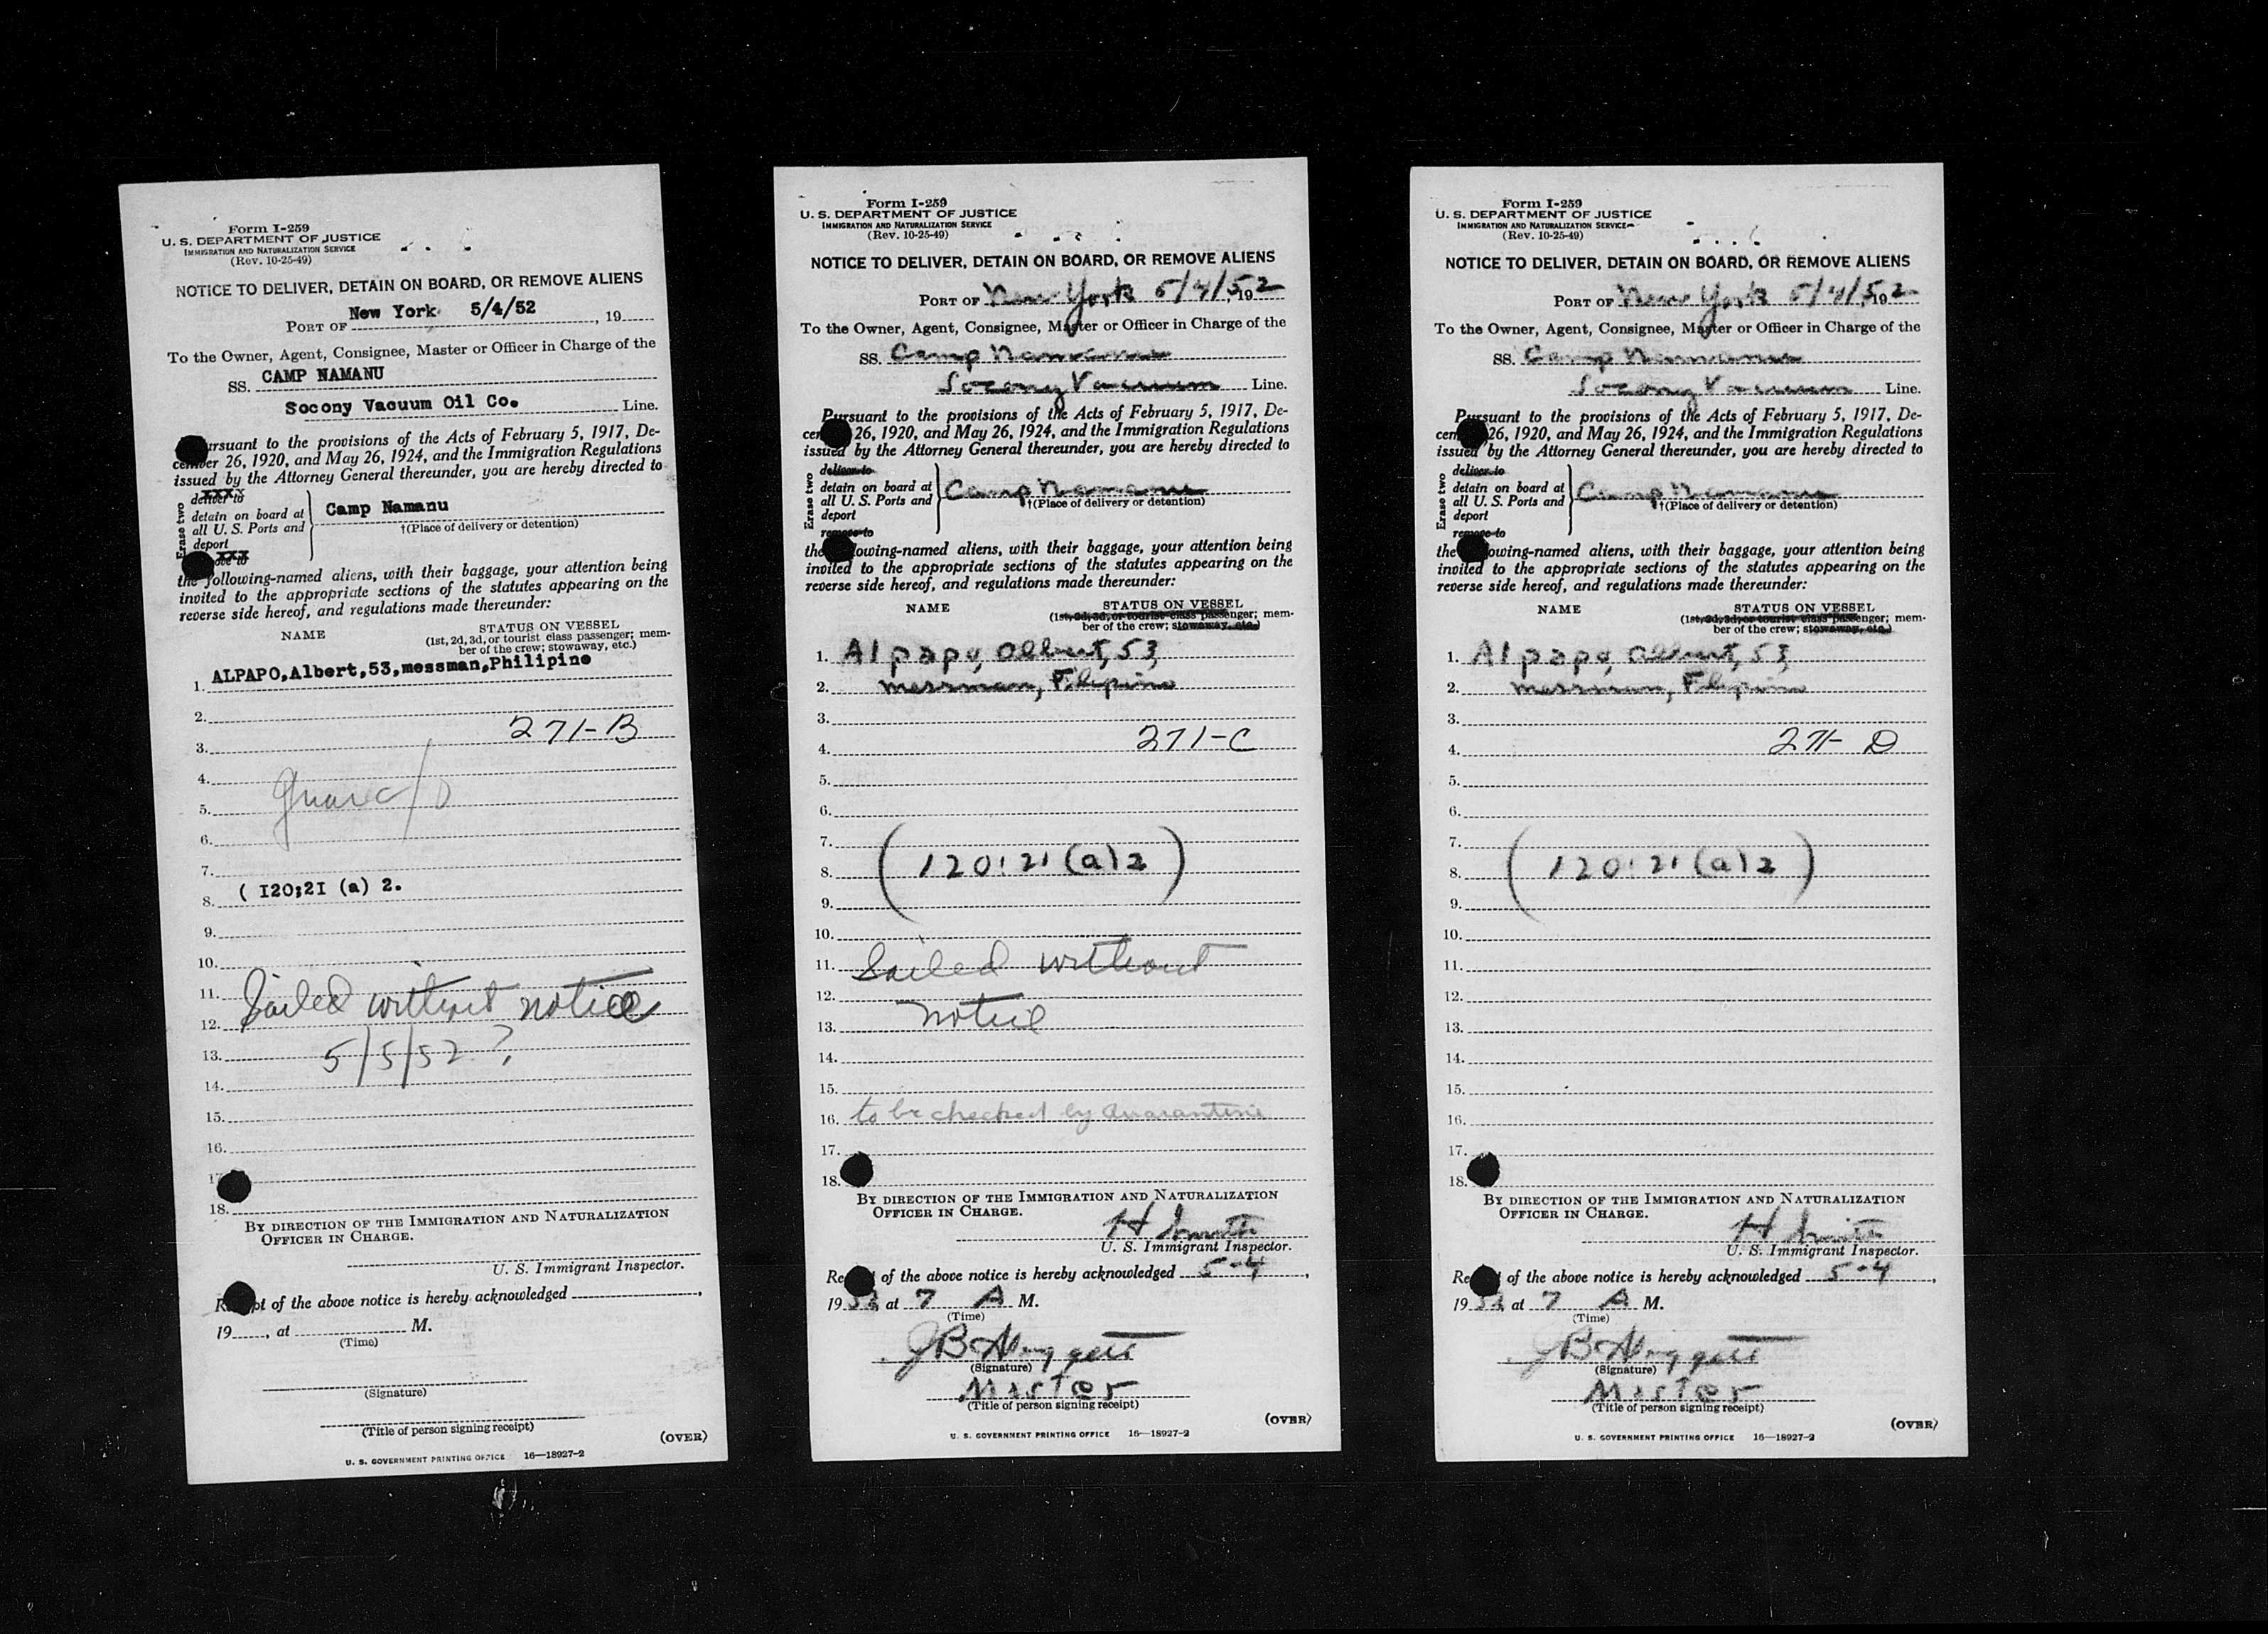 Form I-259
U. S. DEPARTMENT OF JUSTICE
IMMIGRATION AND NATURALIZATION SERVICE
(Rev. 10-25-49)
NOTICE TO DELIVER, DETAIN ON BOARD, OR REMOVE ALIENS
New York 5/4/52
PORT OF , 19
To the Owner, Agent, Consignee, Master or Officer in Charge of the
SS. CAMP NAMANU
Socony Vacuum Oil Co. Line.
ursuant to the provisions of the Acts of February 5, 1917, De-
cember 26, 1920, and May 26, 1924, and the Immigration Regulations
issued by the Attorney General thereunder, you are hereby directed to
Erase two
XXXX
deliver to
detain on board at
all U. S. Ports and
deport
XXX
ove to
Camp Namanu
†(Place of delivery or detention)
the following-named aliens, with their baggage, your attention being
invited to the appropriate sections of the statutes appearing on the
reverse side hereof, and regulations made thereunder:
NAME STATUS ON VESSEL
(1st, 2d, 3d, or tourist class passenger; mem-
ber of the crew; stowaway, etc.)
1. ALPAPO,Albert,53,messman,Philipine
2.
3. 271-B
4.
5.
6.
7.
8. ( I20;2I (a) 2.
9.
10.
11. Sailed without notice
12.
13. 5/5/52 ?
14.
15.
16.
17
18.
BY DIRECTION OF THE IMMIGRATION AND NATURALIZATION
OFFICER IN CHARGE.
U. S. Immigrant Inspector.
R pt of the above notice is hereby acknowledged ,
19 , at M.
(Time)
(Signature)
(Title of person signing receipt)
(OVER)
U. S. GOVERNMENT PRINTING OFFICE 16—18927-2
Form I-259
U. S. DEPARTMENT OF JUSTICE
IMMIGRATION AND NATURALIZATION SERVICE
(Rev. 10-25-49)
NOTICE TO DELIVER, DETAIN ON BOARD, OR REMOVE ALIENS
PORT OF New York 5/4/5, 19 2
To the Owner, Agent, Consignee, Master or Officer in Charge of the
SS. Camp Namanu
Socony Vacuum Line.
Pursuant to the provisions of the Acts of February 5, 1917, De-
cem 26, 1920, and May 26, 1924, and the Immigration Regulations
issued by the Attorney General thereunder, you are hereby directed to
Erase two
deliver to
detain on board at
all U. S. Ports and
deport
remove to
Camp Namanu
†(Place of delivery or detention)
the lowing-named aliens, with their baggage, your attention being
invited to the appropriate sections of the statutes appearing on the
reverse side hereof, and regulations made thereunder:
NAME STATUS ON VESSEL
(1st, 2d, 3d, or tourist class passenger; mem-
ber of the crew; stowaway, etc.)
1. Alpapo, Albert, 53,
2. messman, Filipino
3.
4. 271-C
5.
6.
7.
8. ( 120:21 (a) 2 )
9.
10.
11. Sailed without
12.
13. notice
14.
15.
16. to be checked by Quarantine
17.
18.
BY DIRECTION OF THE IMMIGRATION AND NATURALIZATION
OFFICER IN CHARGE.
H Smith
U. S. Immigrant Inspector.
Re of the above notice is hereby acknowledged 5-4 ,
19 52, at 7 A M.
(Time)
(Signature)
Master
(Title of person signing receipt)
(OVER)
U. S. GOVERNMENT PRINTING OFFICE 16—18927-2
Form I-259
U. S. DEPARTMENT OF JUSTICE
IMMIGRATION AND NATURALIZATION SERVICE
(Rev. 10-25-49)
NOTICE TO DELIVER, DETAIN ON BOARD, OR REMOVE ALIENS
PORT OF New York 5/4/5, 19 2
To the Owner, Agent, Consignee, Master or Officer in Charge of the
SS. Camp Namanu
Socony Vacuum Line.
Pursuant to the provisions of the Acts of February 5, 1917, De-
cem 26, 1920, and May 26, 1924, and the Immigration Regulations
issued by the Attorney General thereunder, you are hereby directed to
Erase two
deliver to
detain on board at
all U. S. Ports and
deport
remove to
Camp Namanu
†(Place of delivery or detention)
the owing-named aliens, with their baggage, your attention being
invited to the appropriate sections of the statutes appearing on the
reverse side hereof, and regulations made thereunder:
NAME STATUS ON VESSEL
(1st, 2d, 3d, or tourist class passenger; mem-
ber of the crew; stowaway, etc.)
1. Alpapo, Albert, 53,
2. messman, Filipino
3.
4. 271- D
5.
6.
7.
8. ( 120:21 (a) 2 )
9.
10.
11.
12.
13.
14.
15.
16.
17.
18.
BY DIRECTION OF THE IMMIGRATION AND NATURALIZATION
OFFICER IN CHARGE.
H Smith
U. S. Immigrant Inspector.
Re of the above notice is hereby acknowledged 5-4 ,
19 52, at 7 A M.
(Time)
(Signature)
Master
(Title of person signing receipt)
(OVER)
U. S. GOVERNMENT PRINTING OFFICE 16—18927-2